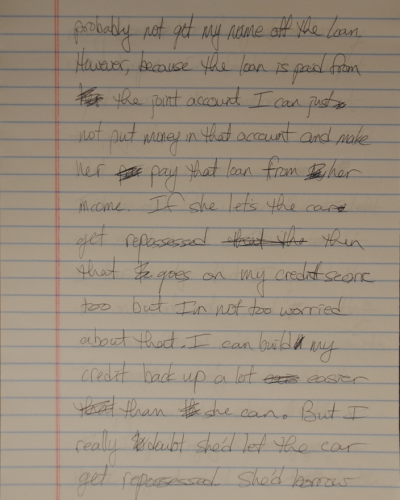 probably not get my name off the loan.
However, because the loan is paid from
the joint account I can just
not put money in that account and make
her pay that loan from her
income. If she let's the car
get repossessed then
that goes on my credit score
too but I'm not too worried
about that. I can build my
credit back up a lot easier
than she can. But I
really doubt she'd let the car
get repossessed. She'd borrow